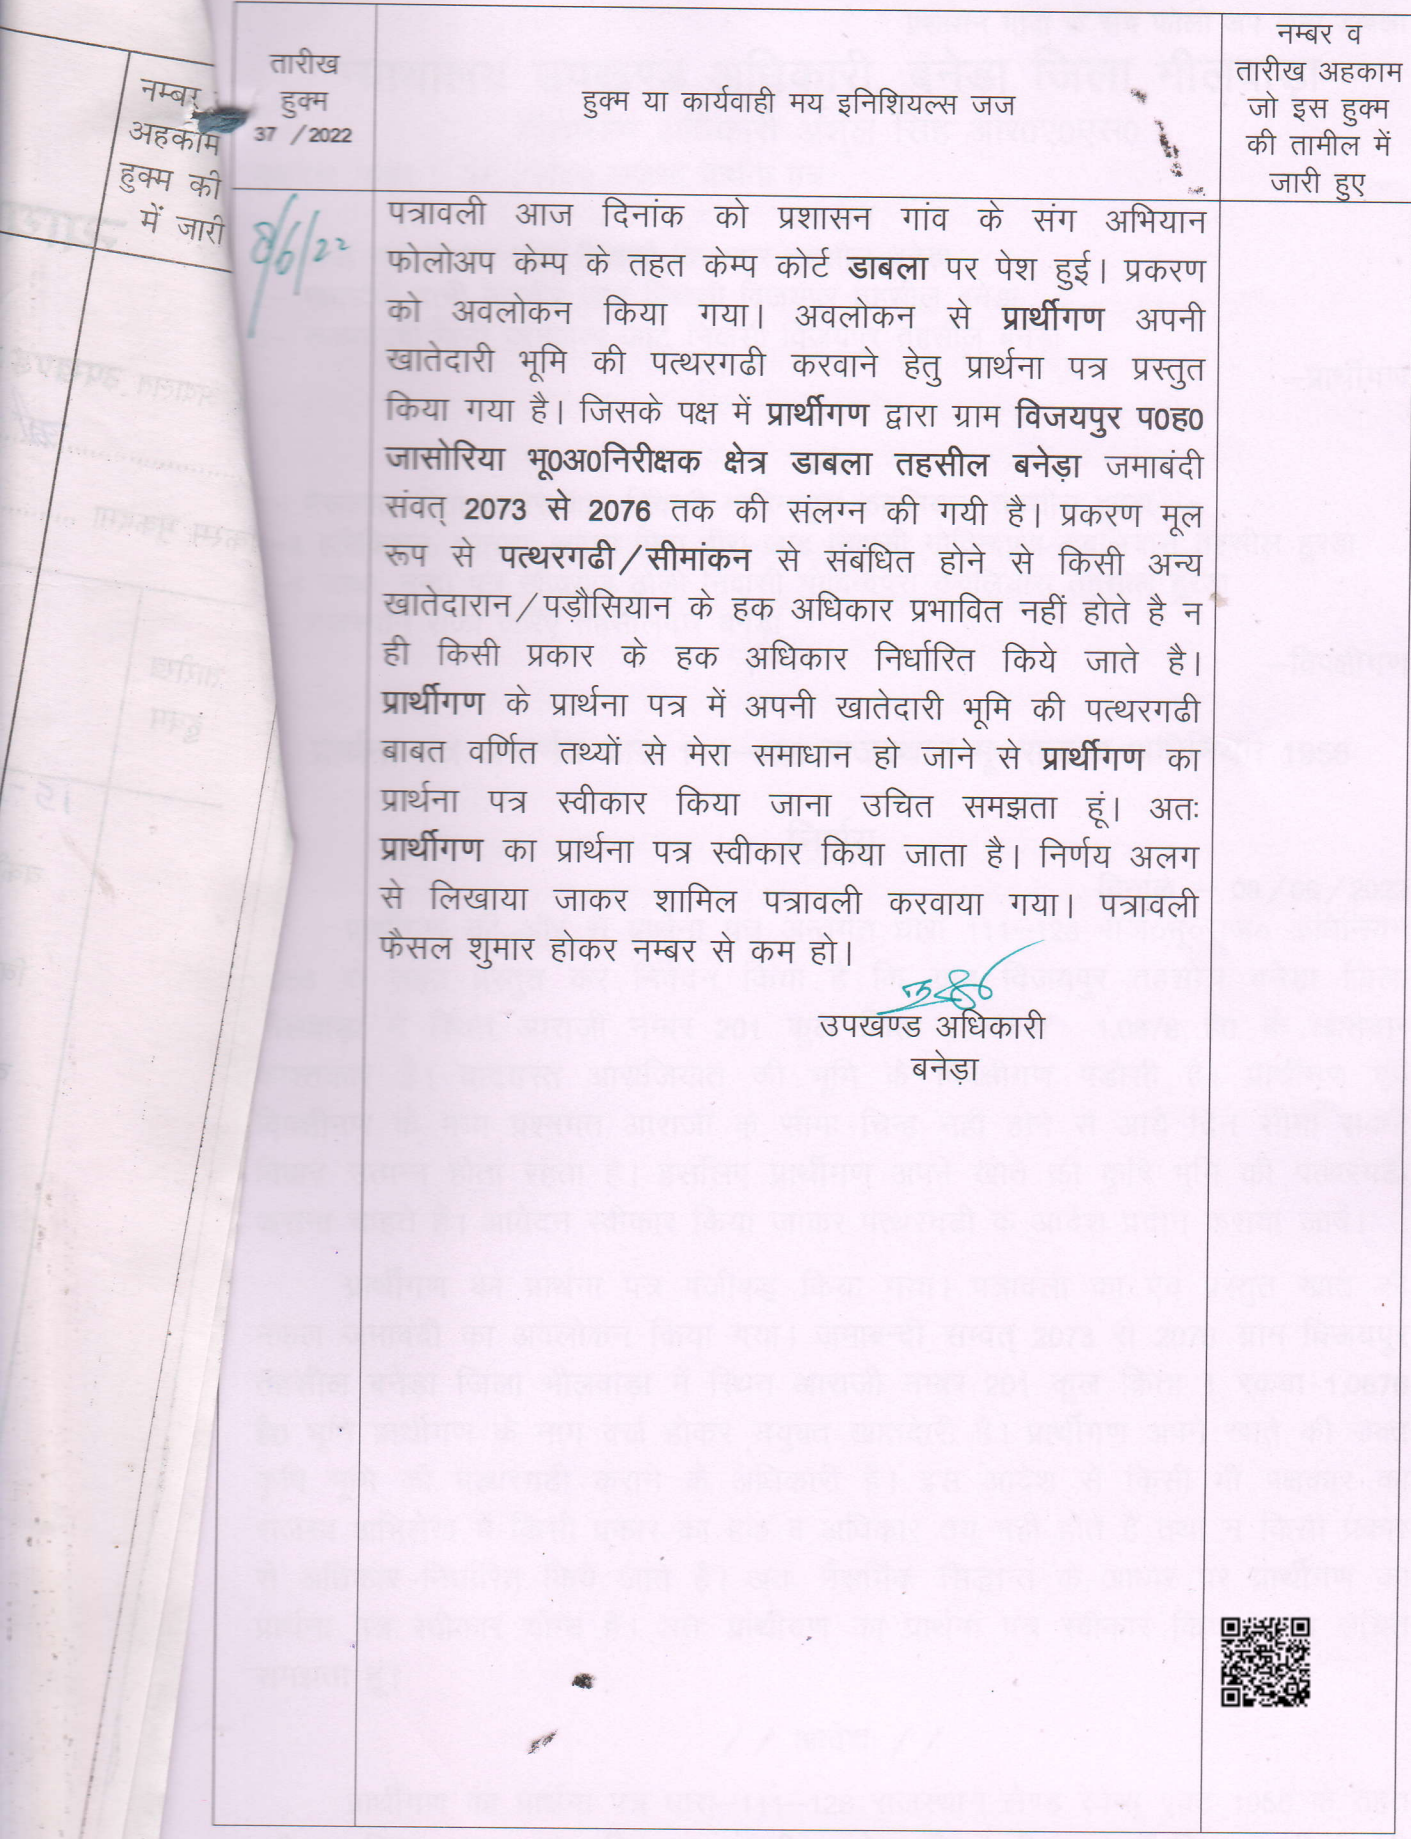 नम्बर
अहकाम
हुक्म की
में जारी
तारीख
हुक्म
37 / 2022
हुक्म या कार्यवाही मय इनिशियल्स जज
नम्बर व
तारीख अहकाम
जो इस हुक्म
की तामील में
जारी हुए
8/6/22
पत्रावली आज दिनांक को प्रशासन गांव के संग अभियान
फोलोअप केम्प के तहत केम्प कोर्ट डाबला पर पेश हुई। प्रकरण
को अवलोकन किया गया। अवलोकन से प्रार्थीगण अपनी
खातेदारी भूमि की पत्थरगढी करवाने हेतु प्रार्थना पत्र प्रस्तुत
किया गया है। जिसके पक्ष में प्रार्थीगण द्वारा ग्राम विजयपुर प0ह0
जासोरिया भू0अ0निरीक्षक क्षेत्र डाबला तहसील बनेड़ा जमाबंदी
संवत् 2073 से 2076 तक की संलग्न की गयी है। प्रकरण मूल
रूप से पत्थरगढी/सीमांकन से संबंधित होने से किसी अन्य
खातेदारान/पड़ौसियान के हक अधिकार प्रभावित नहीं होते है न
ही किसी प्रकार के हक अधिकार निर्धारित किये जाते है।
प्रार्थीगण के प्रार्थना पत्र में अपनी खातेदारी भूमि की पत्थरगढी
बाबत वर्णित तथ्यों से मेरा समाधान हो जाने से प्रार्थीगण का
प्रार्थना पत्र स्वीकार किया जाना उचित समझता हूं। अतः
प्रार्थीगण का प्रार्थना पत्र स्वीकार किया जाता है। निर्णय अलग
से लिखाया जाकर शामिल पत्रावली करवाया गया। पत्रावली
फैसल शुमार होकर नम्बर से कम हो।
उपखण्ड अधिकारी
बनेड़ा